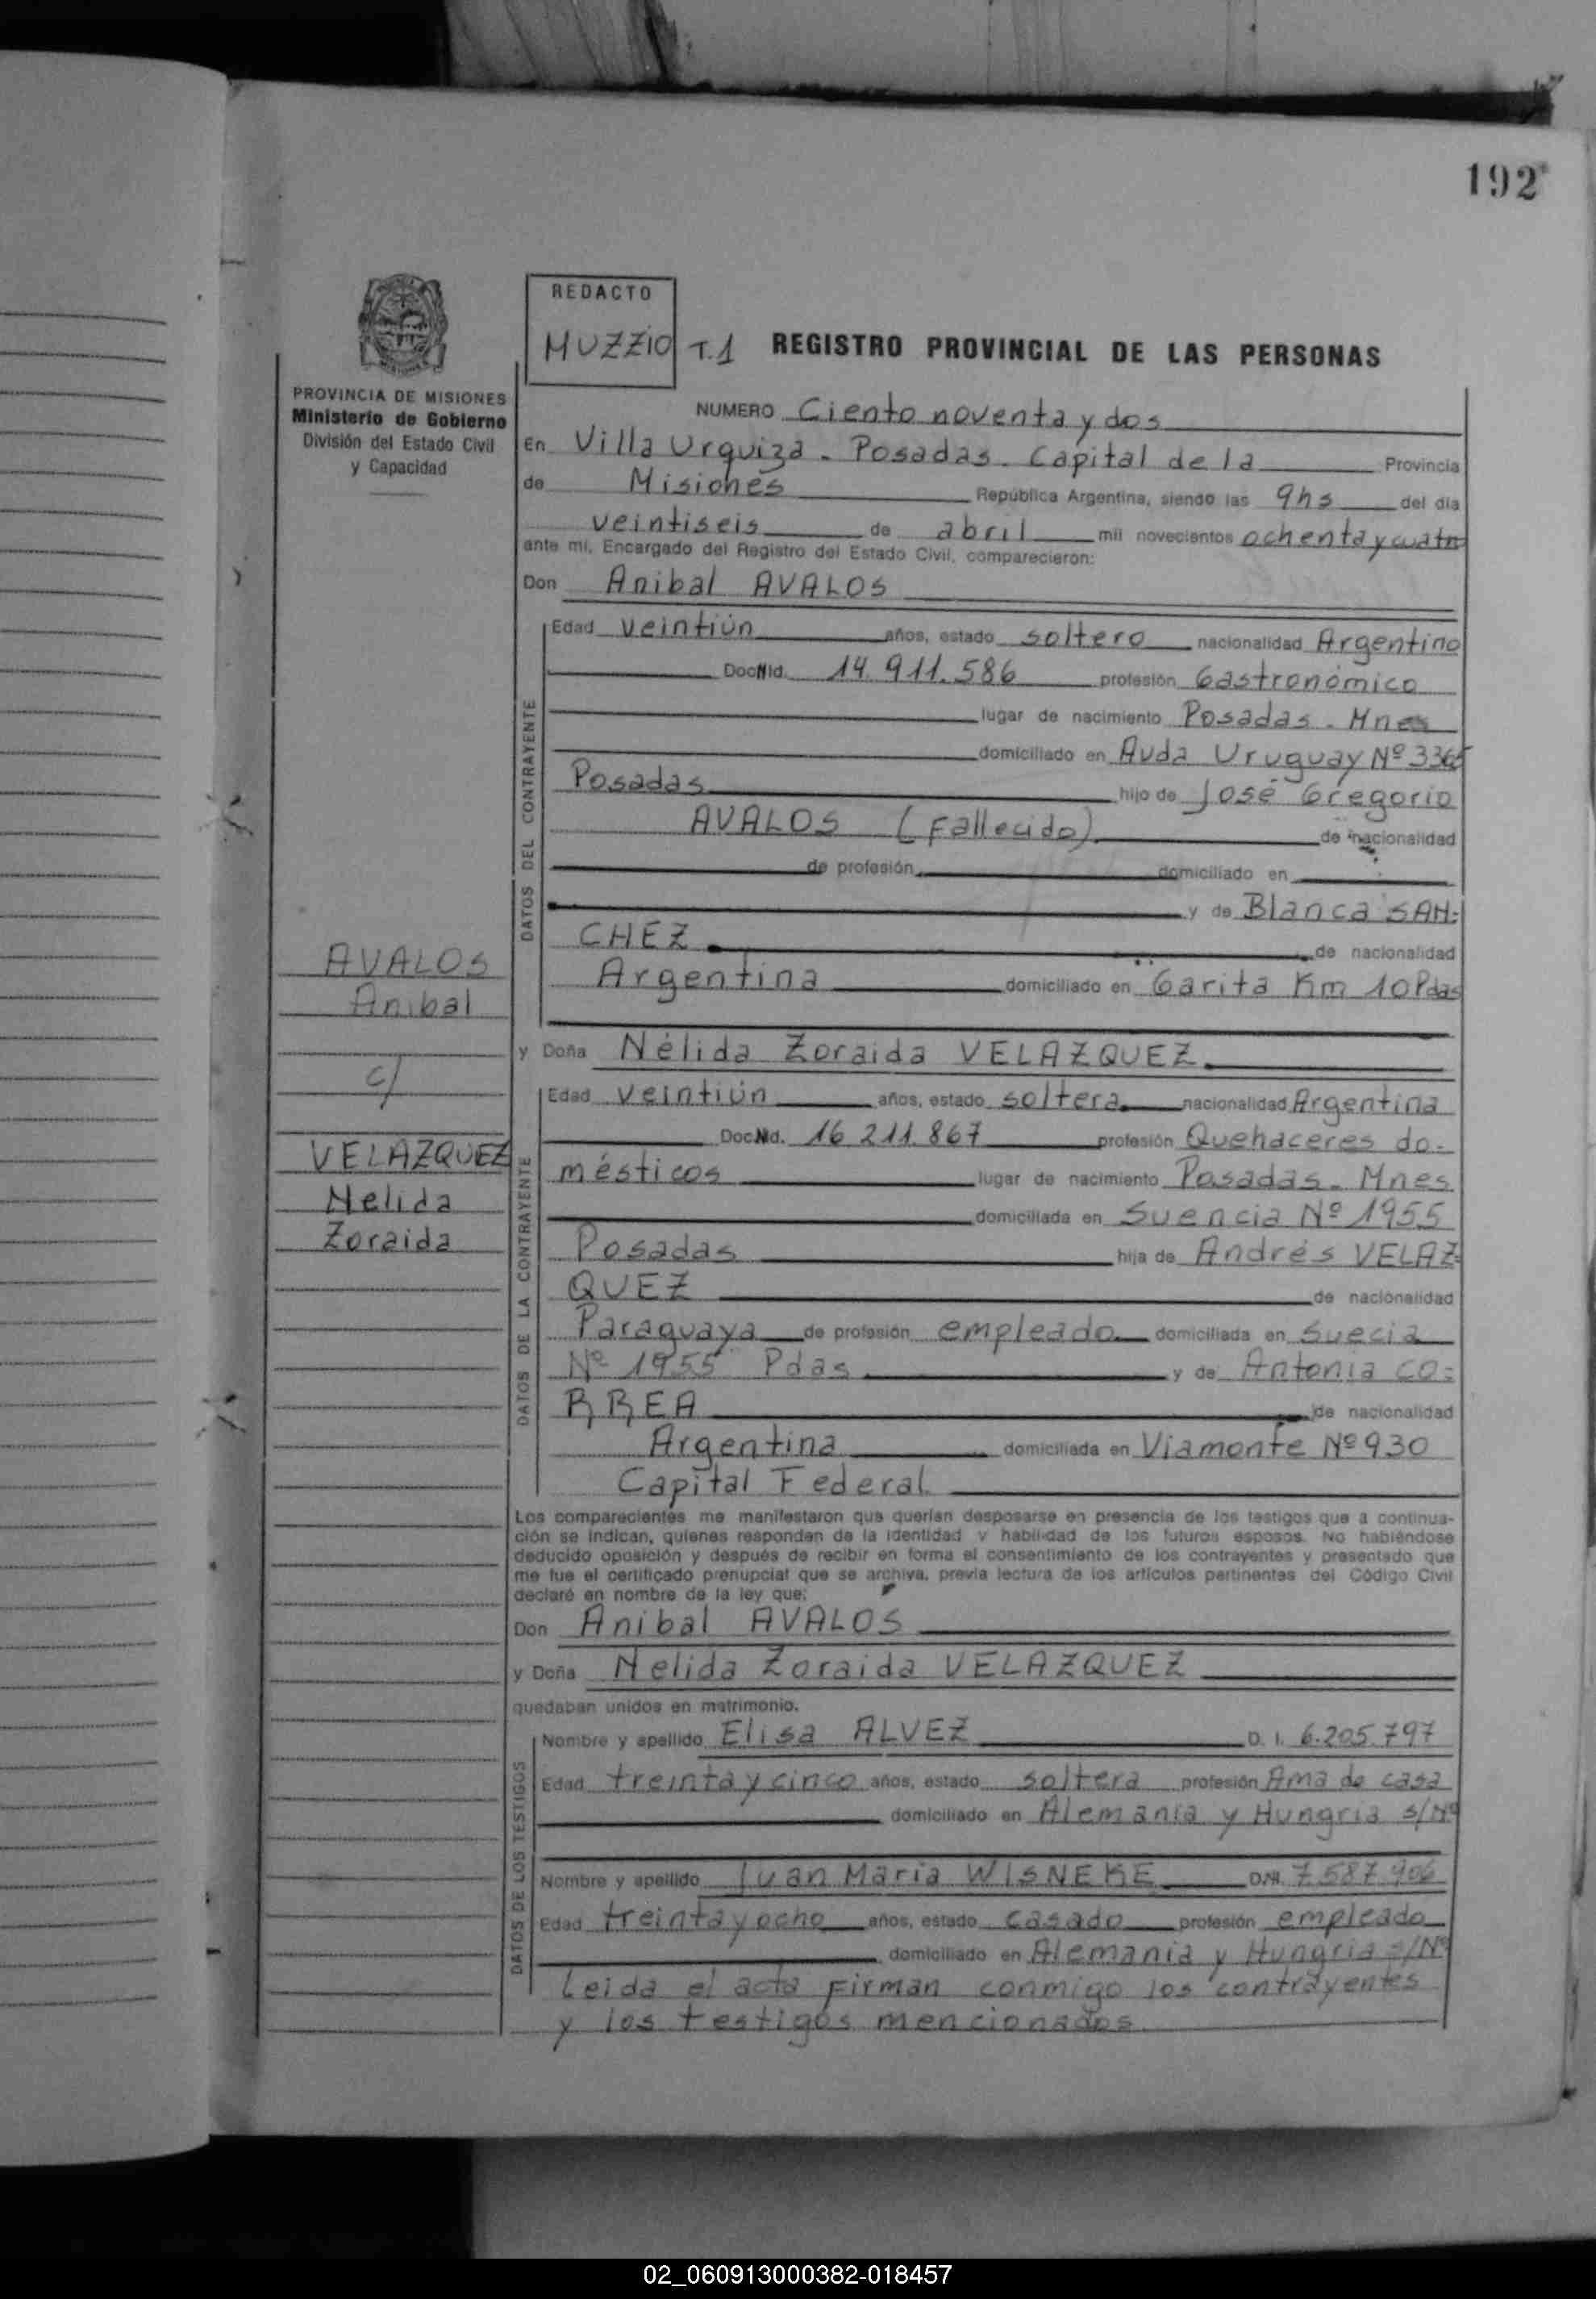 192
REDACTO
MUZZIO T.1 REGISTRO PROVINCIAL DE LAS PERSONAS
PROVINCIA DE MISIONES
Ministerio de Gobierno
División del Estado Civil
y Capacidad
NUMERO Ciento noventa y dos
En Villa Urquiza - Posadas - Capital de la Provincia
de Misiones República Argentina, siendo las 9hs del día
veintiseis de abril mil novecientos ochenta y cuatro
ante mi, Encargado del Registro del Estado Civil, comparecieron:
Don Anibal AVALOS
DATOS DEL CONTRAYENTE
Edad veintiún años, estado soltero nacionalidad Argentino
Doc. Nd. 14.911.586 profesión Gastronómico
lugar de nacimiento Posadas - Mnes
domiciliado en Avda Uruguay Nº 3365
Posadas hijo de José Gregorio
AVALOS (Fallecido) de nacionalidad
de profesión domiciliado en
y de Blanca SAN=
CHEZ de nacionalidad
Argentina domiciliado en Garita Km 10 Pdas
AVALOS
Anibal
c/
VELAZQUEZ
Nelida
Zoraida
y Doña Nélida Zoraida VELAZQUEZ
DATOS DE LA CONTRAYENTE
Edad veintiún años, estado soltera nacionalidad Argentina
Doc. Nd. 16 211.867 profesión Quehaceres do=
mésticos lugar de nacimiento Posadas - Mnes
domiciliada en Suencia Nº 1955
Posadas hija de Andrés VELAZ=
QUEZ de nacionalidad
Paraguaya de profesión empleado domiciliada en Suecia
Nº 1955 Pdas y de Antonia CO=
RREA de nacionalidad
Argentina domiciliada en Viamonte Nº 930
Capital Federal
Los comparecientes me manifestaron que querían desposarse en presencia de los testigos que a continua-
ción se indican, quienes responden de la identidad y habilidad de los futuros esposos. No habiéndose
deducido oposición y después de recibir en forma el consentimiento de los contrayentes y presentado que
me fue el certificado prenupcial que se archiva, previa lectura de los artículos pertinentes del Código Civil
declaré en nombre de la ley que:
Don Anibal AVALOS
y Doña Nelida Zoraida VELAZQUEZ
quedaban unidos en matrimonio.
DATOS DE LOS TESTIGOS
Nombre y apellido Elisa ALVEZ D. I. 6.205.797
Edad treinta y cinco años, estado soltera profesión Ama de casa
domiciliado en Alemania y Hungria s/Nº
Nombre y apellido Juan Maria WISNEKE D.NI. 7.587.906
Edad treinta y ocho años, estado casado profesión empleado
domiciliado en Alemania y Hungria s/Nº
Leida el acta firman conmigo los contrayentes
y los testigos mencionados
02_060913000382-018457